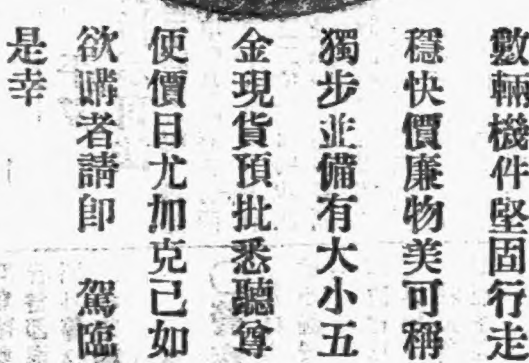 數輛機件堅固行走
穩快價廉物美可稱
獨步並備有大小五
金現貨預批悉聽尊
便價目尤加克己如
欲購者請即　駕臨
是幸